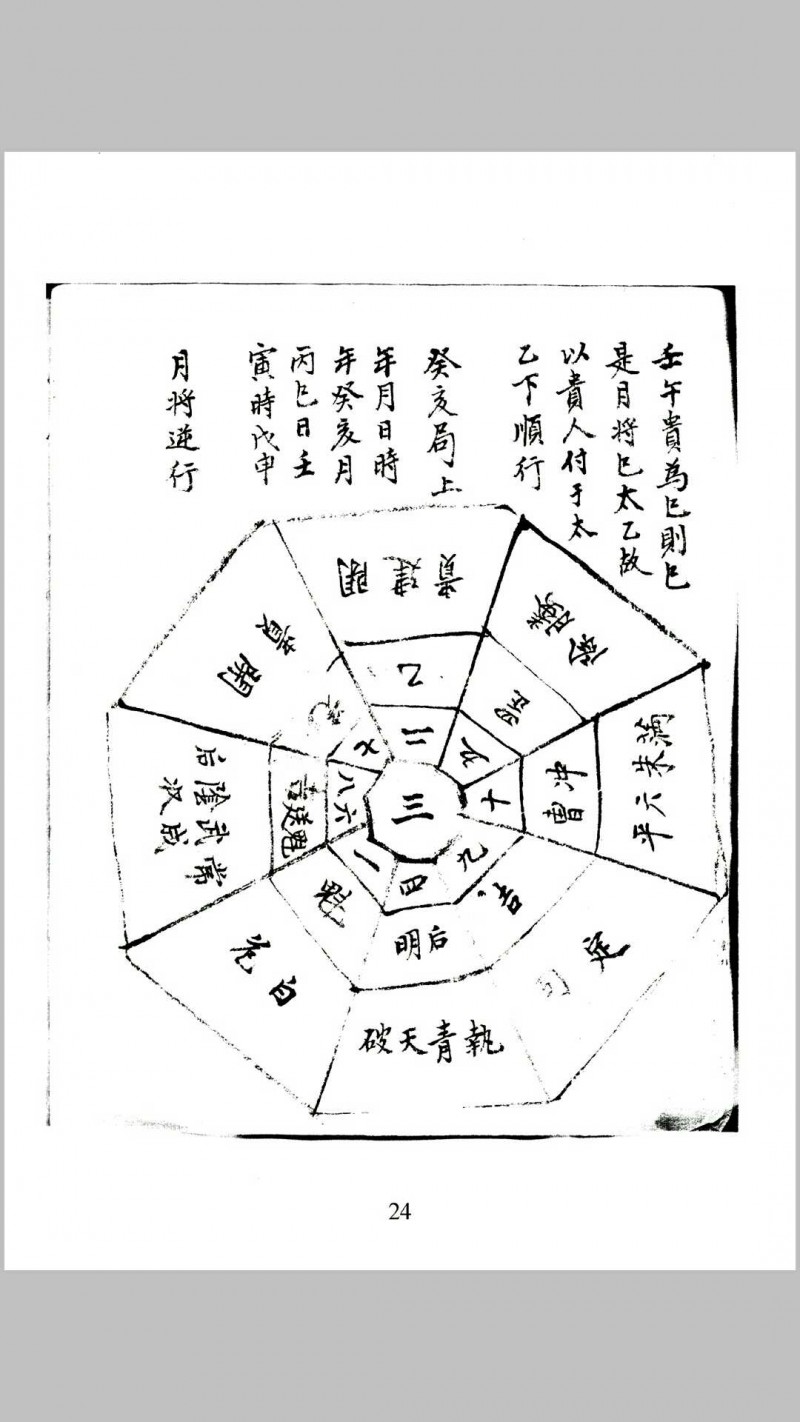 壬午貴為巳則巳
是月將巳太乙故
以貴人付于太
乙下順行
癸亥局上
年月日時
年癸亥月
丙巳日壬
寅時戊申
月将逆行
貴建閉
乙
二
七
八六
一
四
九
十
三
冲曹
朱六平
后陰武常
收成
送
魁
明后
白
定
破天青執
24